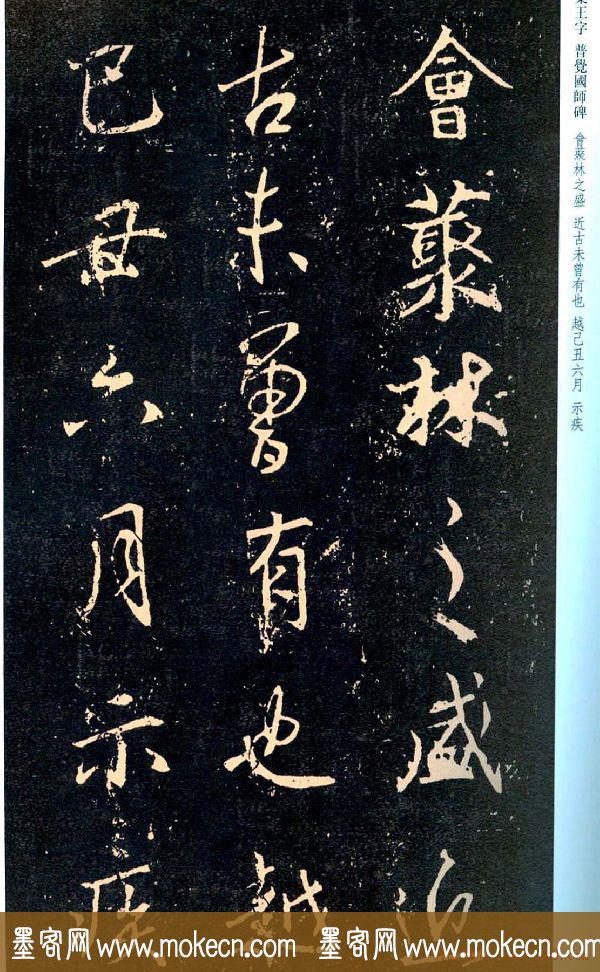 會藂林之盛近
古未曾有也越
己丑六月示疾
集王字 普覺國師碑 會藂林之盛 近古未曾有也 越己丑六月 示疾
墨客网 www.mokecn.com 墨客网 www.mokecn.com